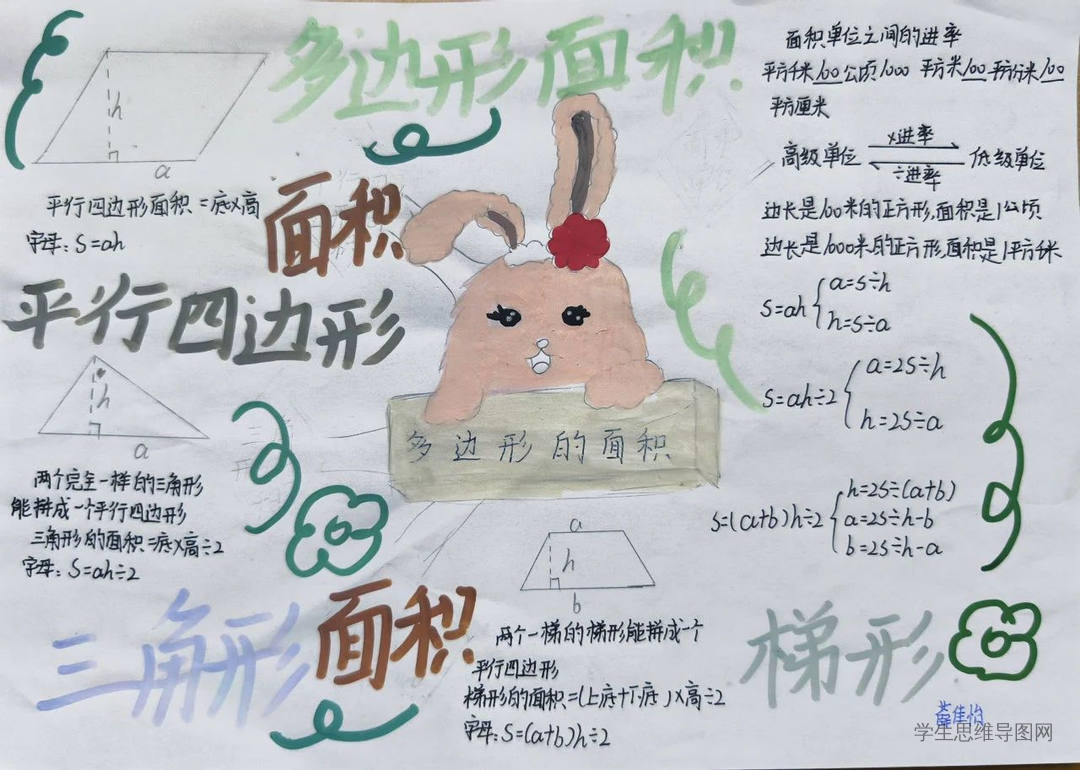 多边形面积
h
a
平行四边形面积=底×高
字母:S=ah
面积
平行四边形
h
a
两个完全一样的三角形
能拼成一个平行四边形
三角形的面积=底×高÷2
字母:S=ah÷2
三角形面积
多边形的面积
a
h
b
两个一梯的梯形能拼成一个
平行四边形
梯形的面积=(上底+下底)×高÷2
字母:S=(a+b)h÷2
面积单位之间的进率
平方千米100公顷1000平方米100平方分米100
平方厘米
高级单位
×进率
÷进率
低级单位
边长是100米的正方形,面积是1公顷
边长是1000米的正方形,面积是1平方千米
S=ah
a=S÷h
h=S÷a
S=ah÷2
a=2S÷h
h=2S÷a
S=(a+b)h÷2
h=2S÷(a+b)
a=2S÷h-b
b=2S÷h-a
梯形
佳怡
学生思维导图网